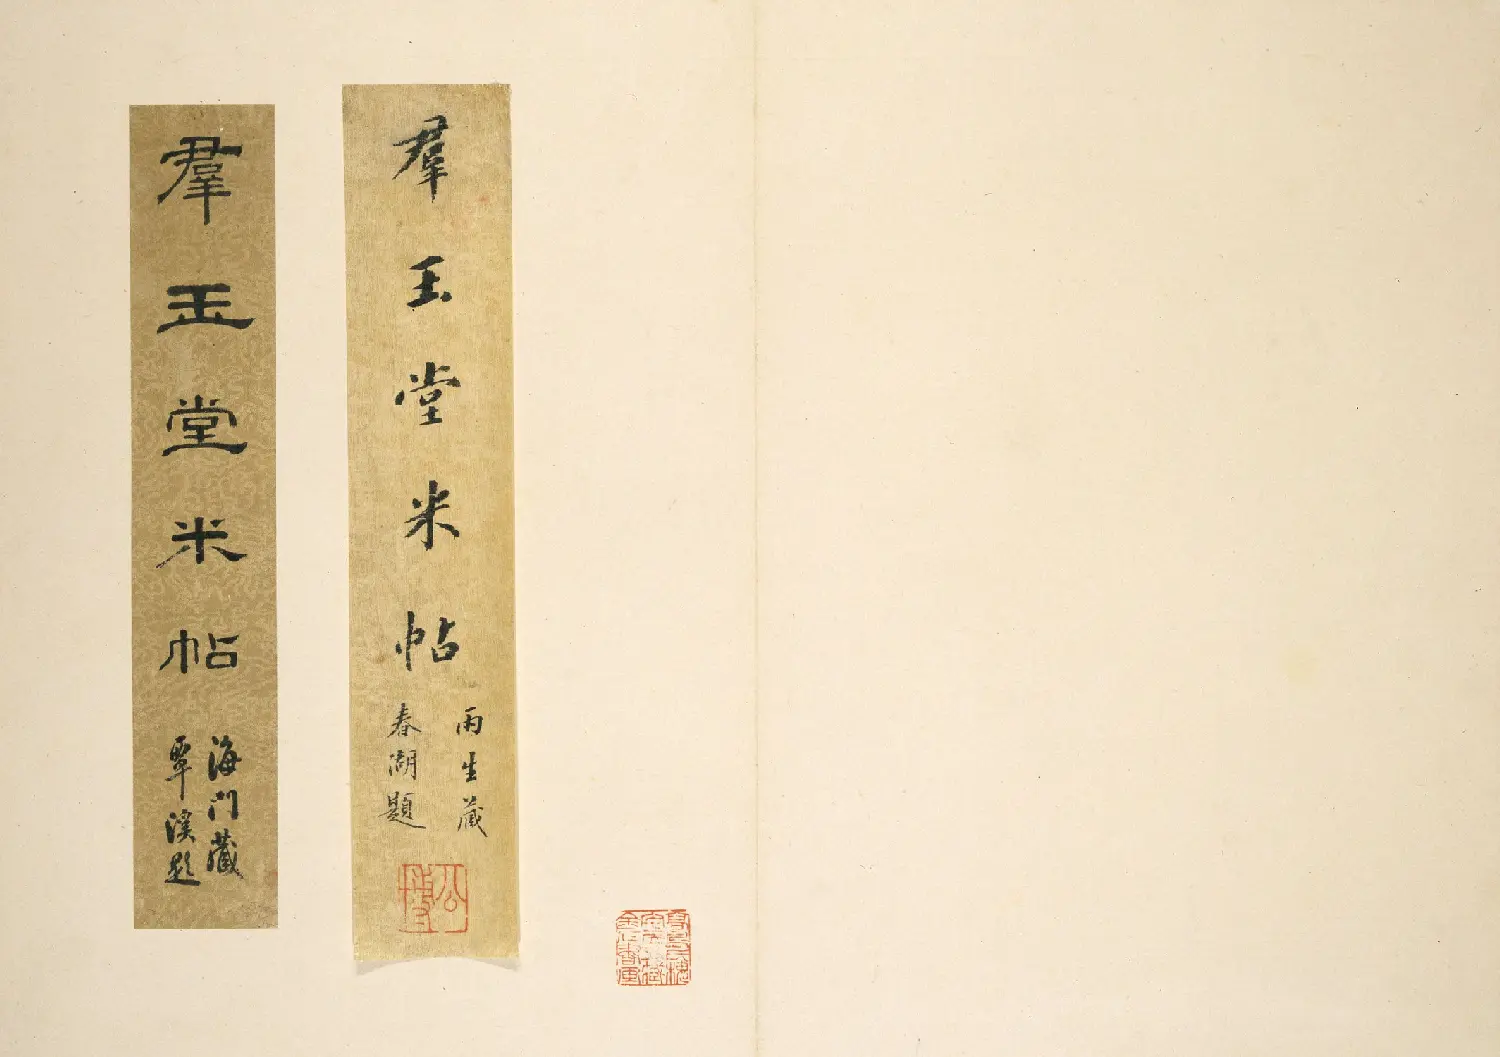 羣玉堂米帖
雨生藏
春湖題
公博
羣玉堂米帖
海門藏
覃溪題